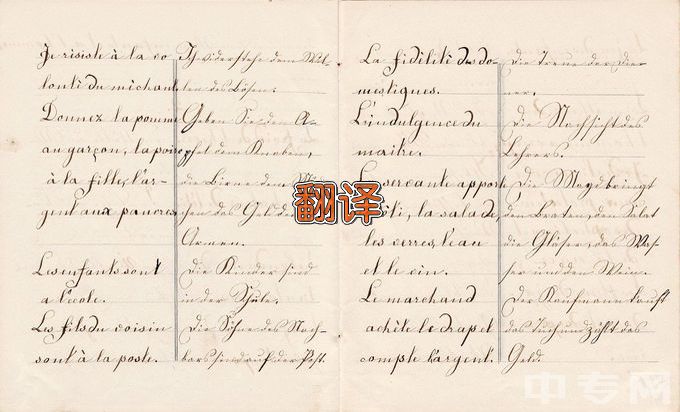 Je résiste à la vo-
lonté du méchant.
Donnez la pomme
au garçon, la poire
à la fille, l'ar-
gent aux pauvres
Les enfants sont
à l'école.
Les fils du voisin
sont à la poste.
Ich widerstehe dem Wil-
len des Bösen.
Geben Sie den A-
pfel dem Knaben,
die Birne dem
das Geld den
Armen.
Die Kinder sind
in der Schule.
Die Söhne des Nach-
bars sind auf der Post.
La fidélité des do-
mestiques.
L'indulgence du
maître.
La servante apporte
la salade,
les verres, l'eau
et le vin.
Le marchand
achète le drap et
compte l'argent.
Die Treue der Die-
ner.
Die Nachsicht des
Lehrers.
Die Magd bringt
den Braten, den Salat
die Gläser, das Was-
ser und den Wein.
Der Kaufmann kauft
das Tuch und zählt das
Geld.
翻译
中专网